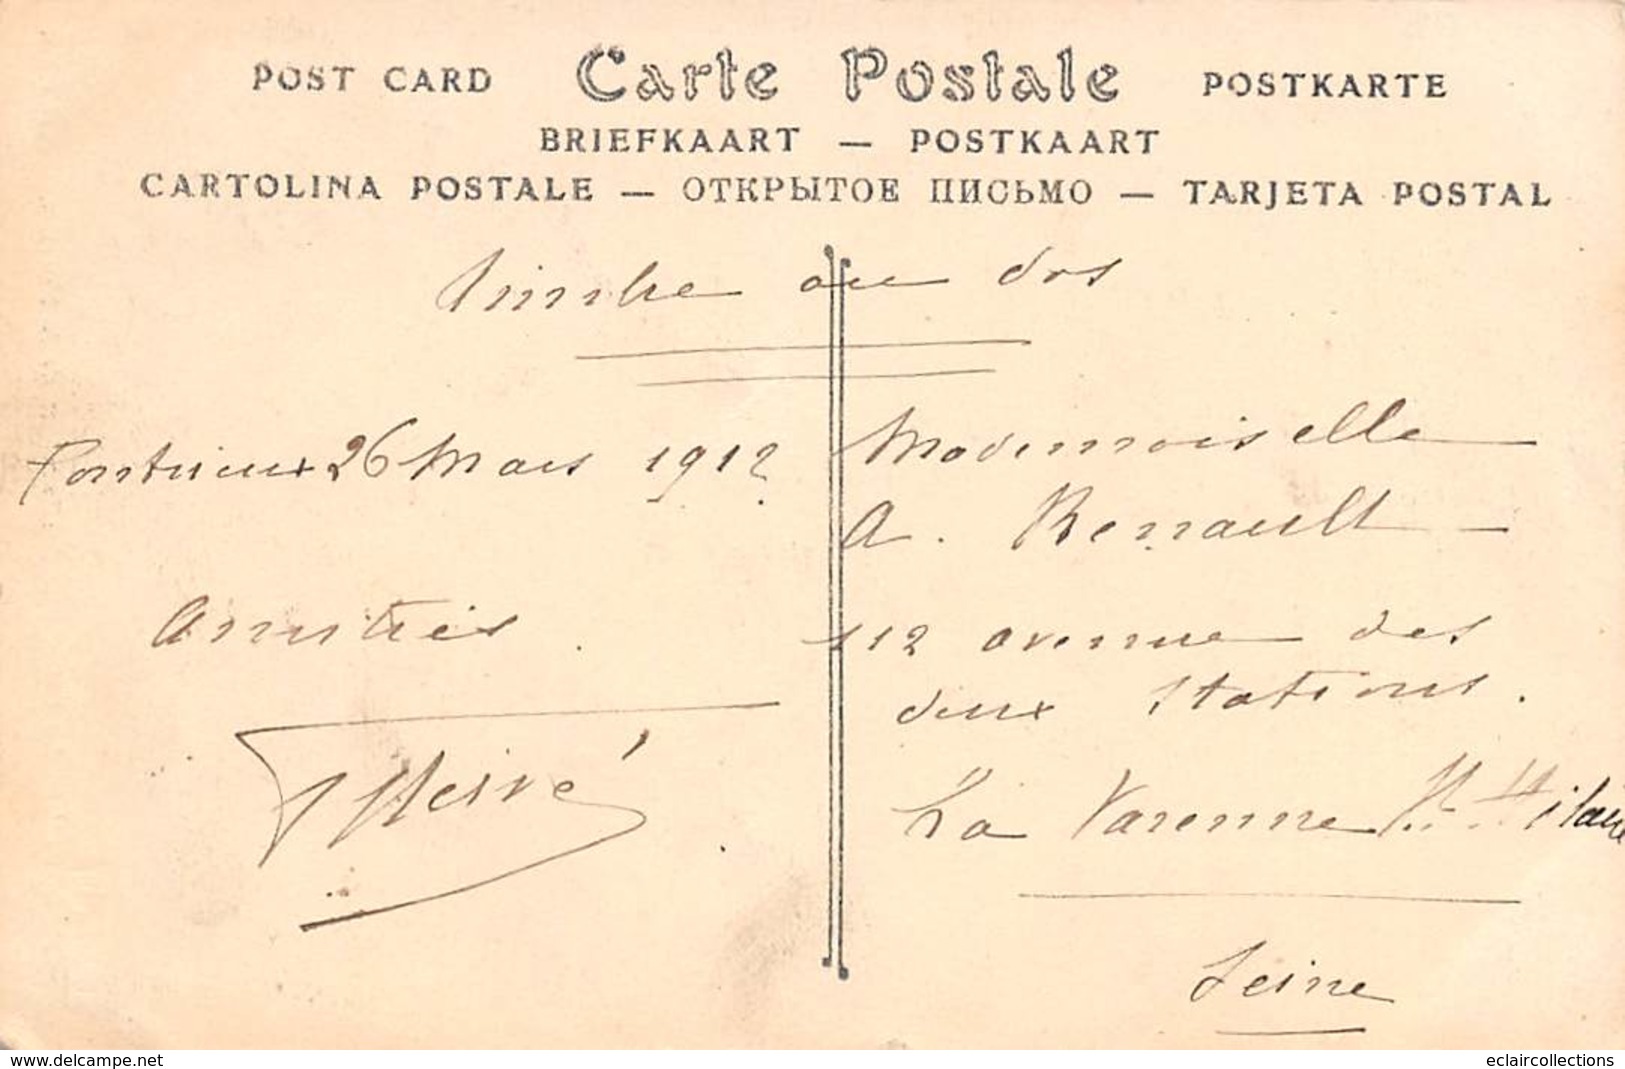 POST CARD Carte Postale POSTKARTE
BRIEFKAART — POSTKAART
CARTOLINA POSTALE — ОТКРЫТОЕ ПИСЬМО — TARJETA POSTAL
Timbre au dos
Pontrieux 26 Mars 1912
Amitiés.
Hervé
Mademoiselle
A. Renault
112 avenue des
deux Stations.
La Varenne St Hilaire
Seine
www.delcampe.net
eclaircollections